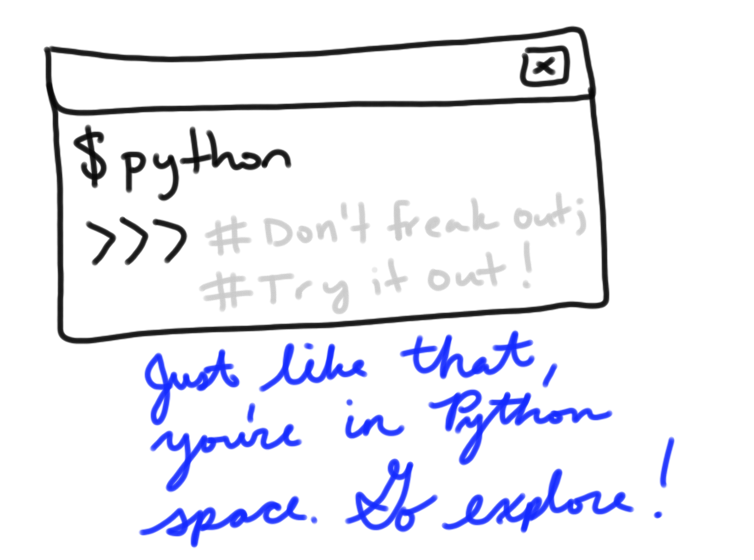 x
$python
>>> #Don't freak out;
#Try it out!
Just like that,
you're in Python
space. Go explore!